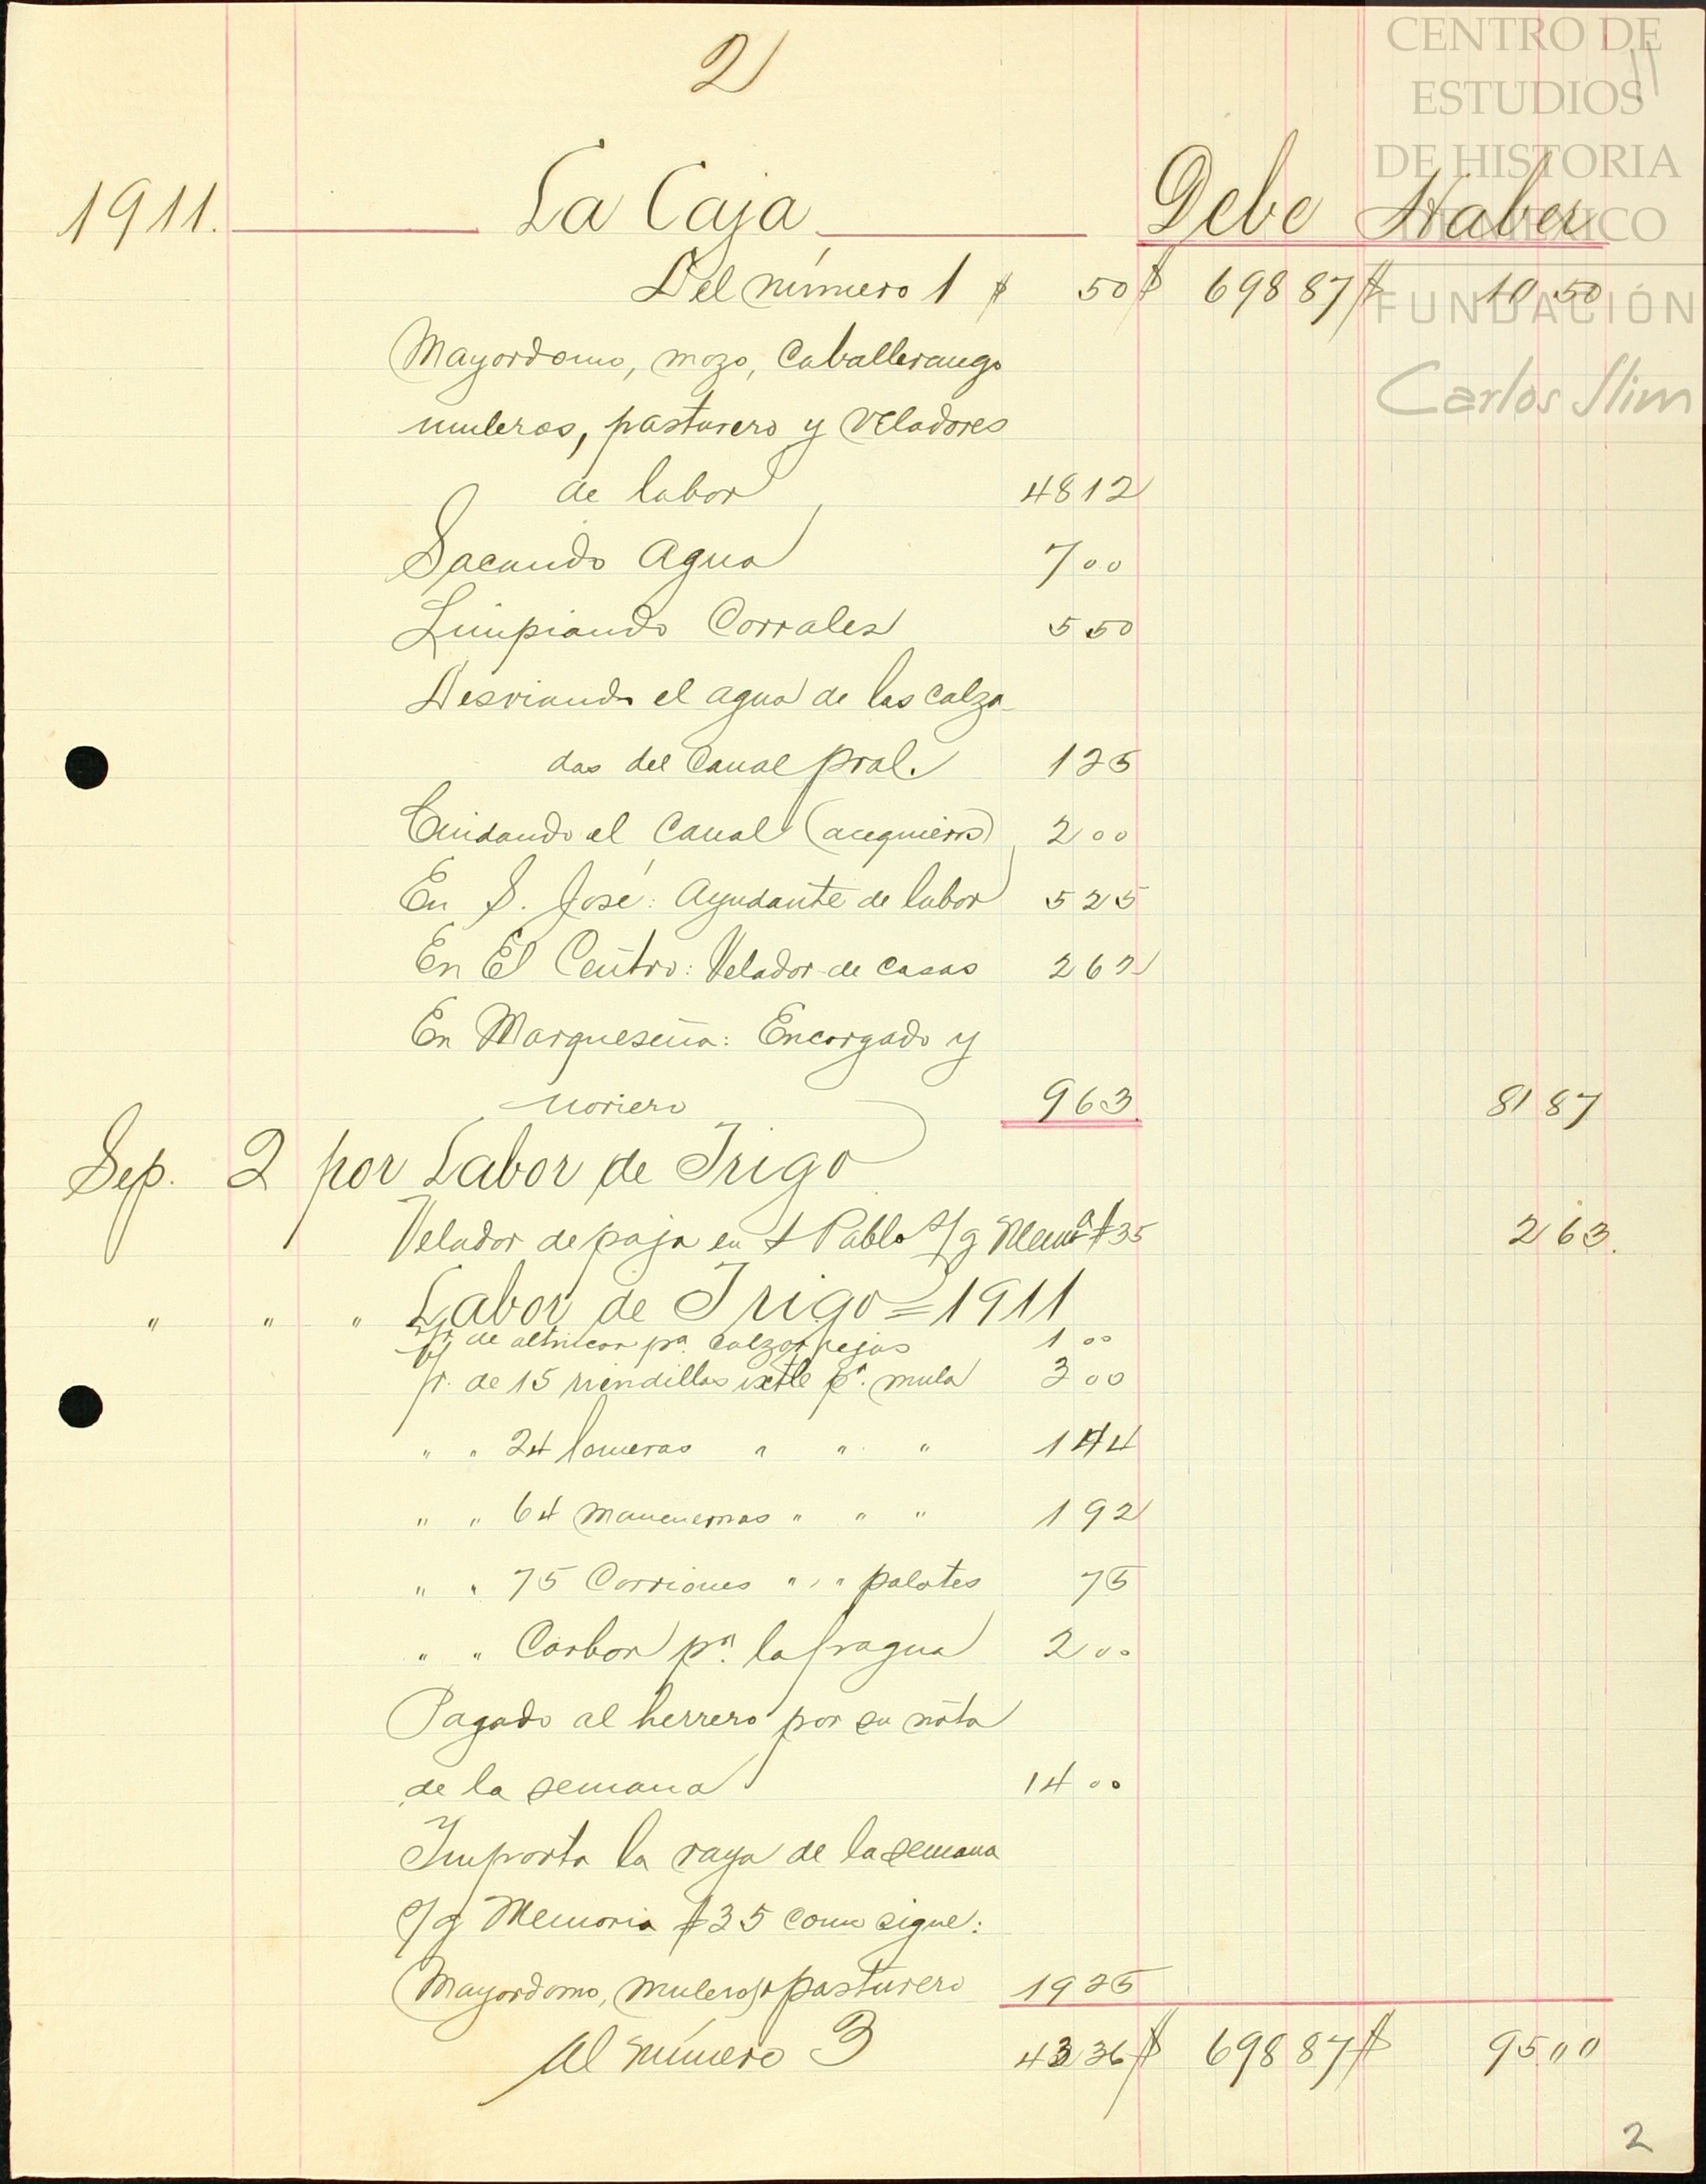 2
11
CENTRO DE
ESTUDIOS
DE HISTORIA
DE MÉXICO
FUNDACIÓN
Carlos Slim
1911. La Caja Debe Haber
Del número 1 $ 50 $ 698 87 $ 10 50
Mayordomo, mozo, Caballerango
muleros, pasturero y veladores
de labor 48 12
Sacando Agua 7 00
Limpiando Corrales 5 50
Desviando el agua de las calza-
das del Canal pral. 1 25
Cuidando el Canal (acequiero) 2 00
En S. José: Ayudante de labor 5 25
En El Centro: Velador de casas 2 62
En Marqueseña: Encargado y
noriero 9 63 81 87
Sep. 2 por Labor de Trigo
Velador de paja en S Pablo s/g Mema #35 2 63.
" " " Labor de Trigo = 1911
de pa. calzar rejas 1 00
p. de 15 riendillas ixtle pa. mula 3 00
" " 24 lomeras " " " 1 44
" " 64 mancuernas " " " 1 92
" " 75 Corriones " " " palotes 75
" " Carbon pa. la fragua 2 00
Pagado al herrero por su nota
de la semana 14 00
Importa la raya de la semana
s/g Memoria #35 como sigue:
Mayordomo, muleros y pasturero 19 25
Al número 3 43 36 $ 698 87 $ 95 00
2